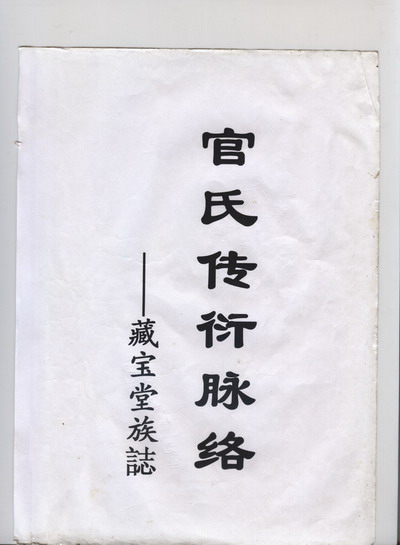 官氏传衍脉络
——藏宝堂族誌